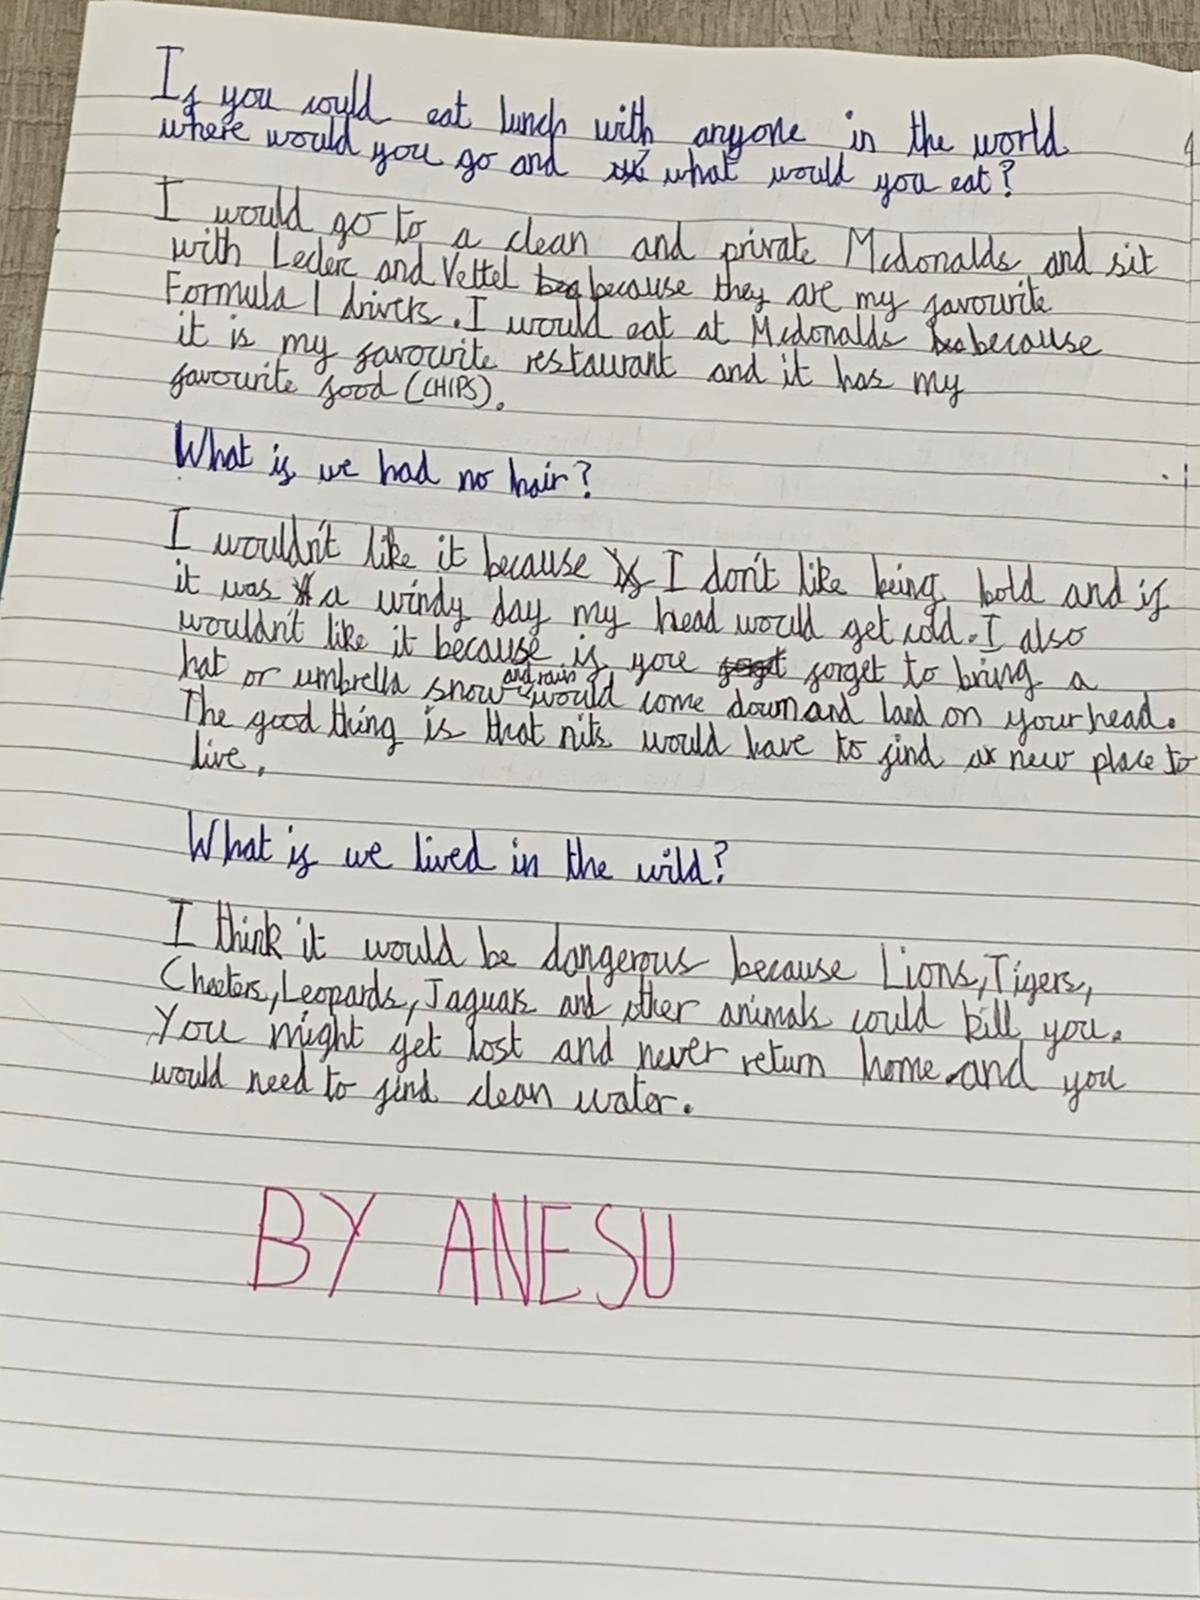 If you could eat lunch with anyone in the world
where would you go and what would you eat?
I would go to a clean and private Mcdonalds and sit
with Leclerc and Vettel because they are my favourite
Formula 1 drivers. I would eat at Mcdonalds because
it is my favourite restaurant and it has my
favourite food (CHIPS).
What if we had no hair?
I wouldn't like it because I don't like being bold and if
it was a windy day my head would get cold. I also
wouldn't like it because if youre forget to bring a
hat or umbrella snow and rain would come down and land on your head.
The good thing is that nits would have to find a new place to
live.
What if we lived in the wild?
I think it would be dangerous because Lions, Tigers,
Cheeters, Leopards, Jaguars and other animals could kill you.
You might get lost and never return home and you
would need to find clean water.
BY ANESU